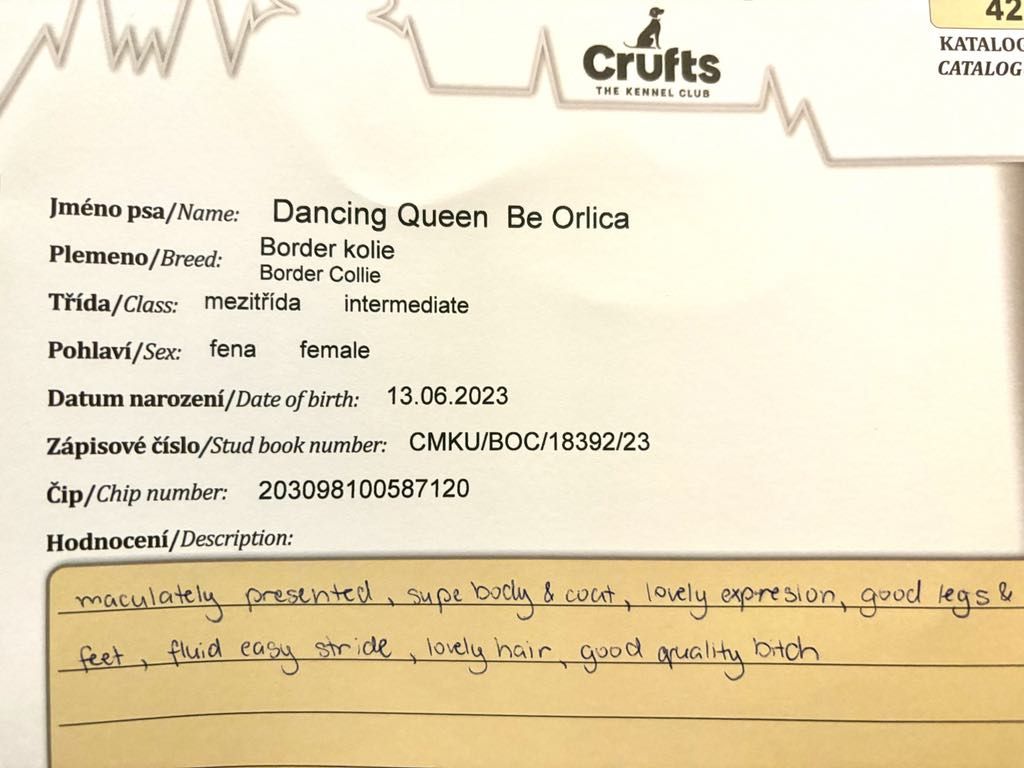 42
KATALOG
CATALOG
Crufts
THE KENNEL CLUB
Jméno psa/Name: Dancing Queen Be Orlica
Plemeno/Breed: Border kolie
Border Collie
Třída/Class: mezitřída intermediate
Pohlaví/Sex: fena female
Datum narození/Date of birth: 13.06.2023
Zápisové číslo/Stud book number: CMKU/BOC/18392/23
Čip/Chip number: 203098100587120
Hodnocení/Description:
maculately presented, supe body & coat, lovely expresion, good legs &
feet, fluid easy stride, lovely hair, good quality bitch